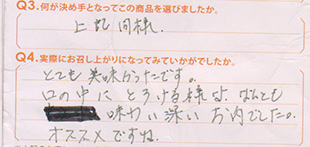 Q3.何が決め手となってこの商品を選びましたか。
上記同様.
Q4.実際にお召し上がりになってみていかがでしたか。
とても美味かったです。
口の中にとろける様な、なんとも
味わい深いお肉でした。
オススメですね.